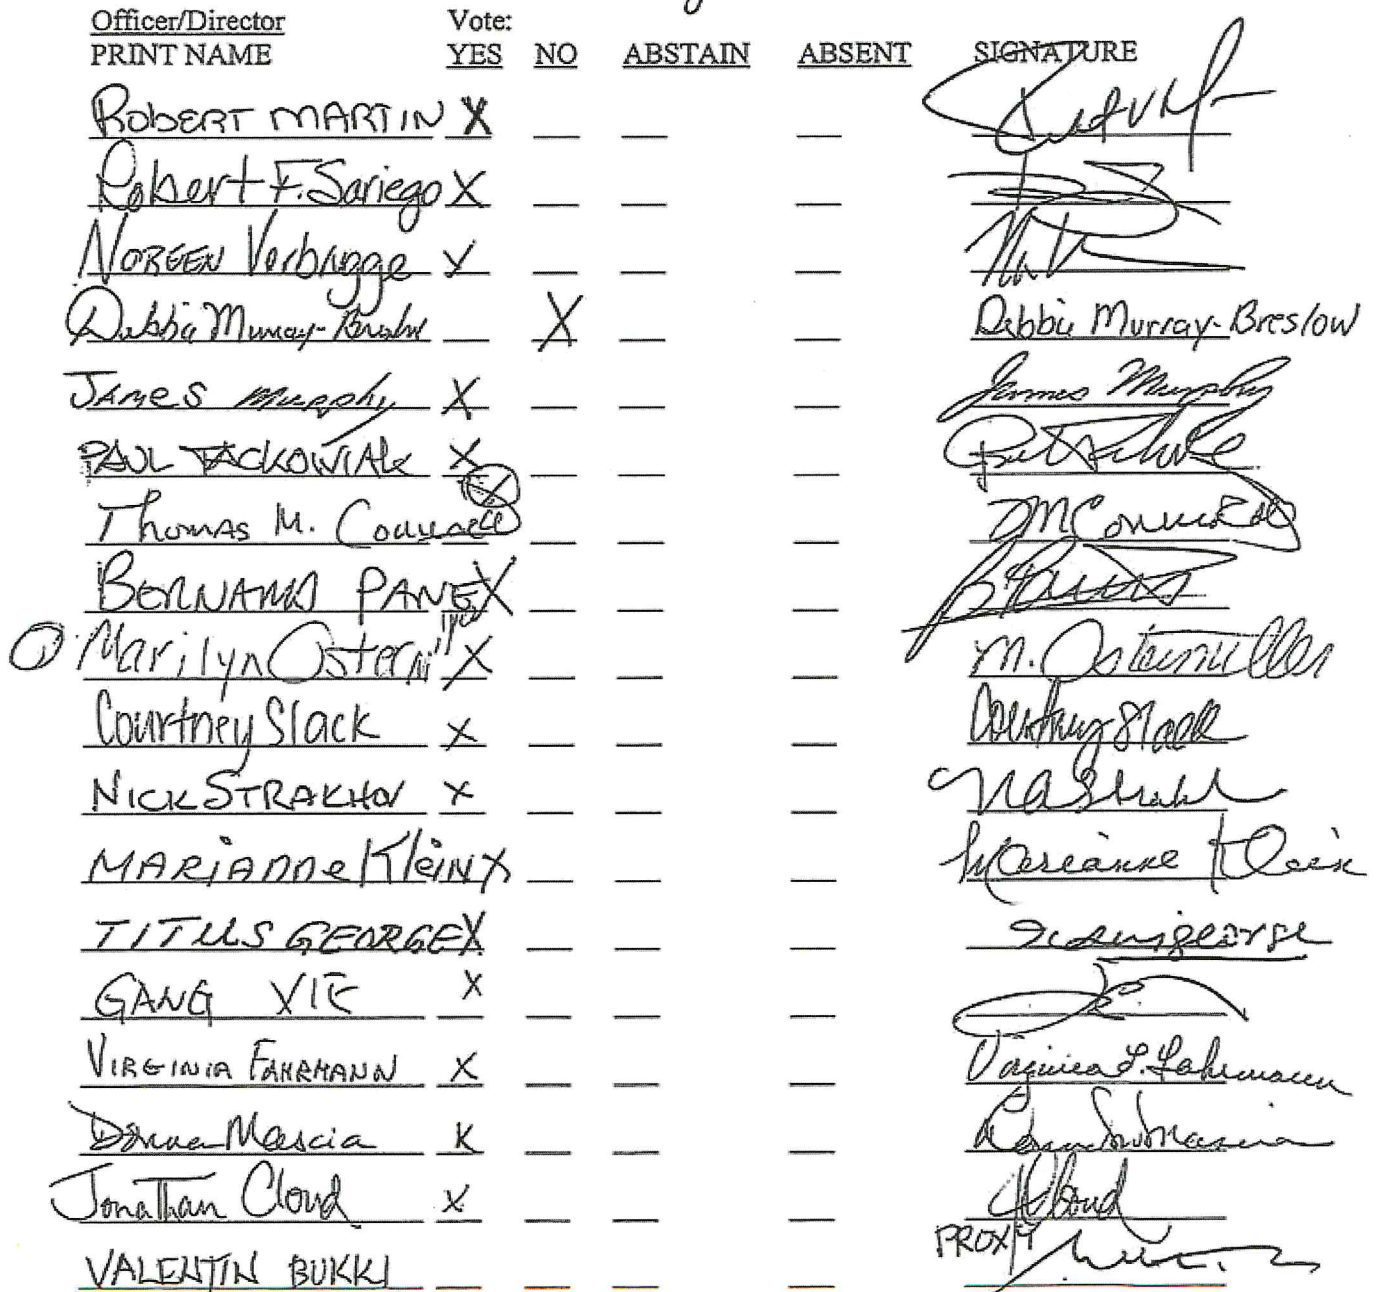 Officer/Director Vote:
PRINT NAME YES NO ABSTAIN ABSENT SIGNATURE
ROBERT MARTIN X
Robert F. Sariego X
NOREEN Verbrugge X
Debbie Murray- X Debbie Murray-Breslow
JAMES Murphy X James Murphy
PAUL TACKOWIAK X
Thomas M. X
BERNARD PANE X
Marilyn Osterm X M. Ostermiller
Courtney Slack X Courtney Slack
NICK STRAKHOV X
MARIANNE Klein X Marianne Klein
TITUS GEORGE X
GANG XIE X
VIRGINIA FAHRMANN X Virginia F. Fahrmann
Donna Mascia X
JonaThan Cloud X JCloud
VALENTIN BUKKI PROXY